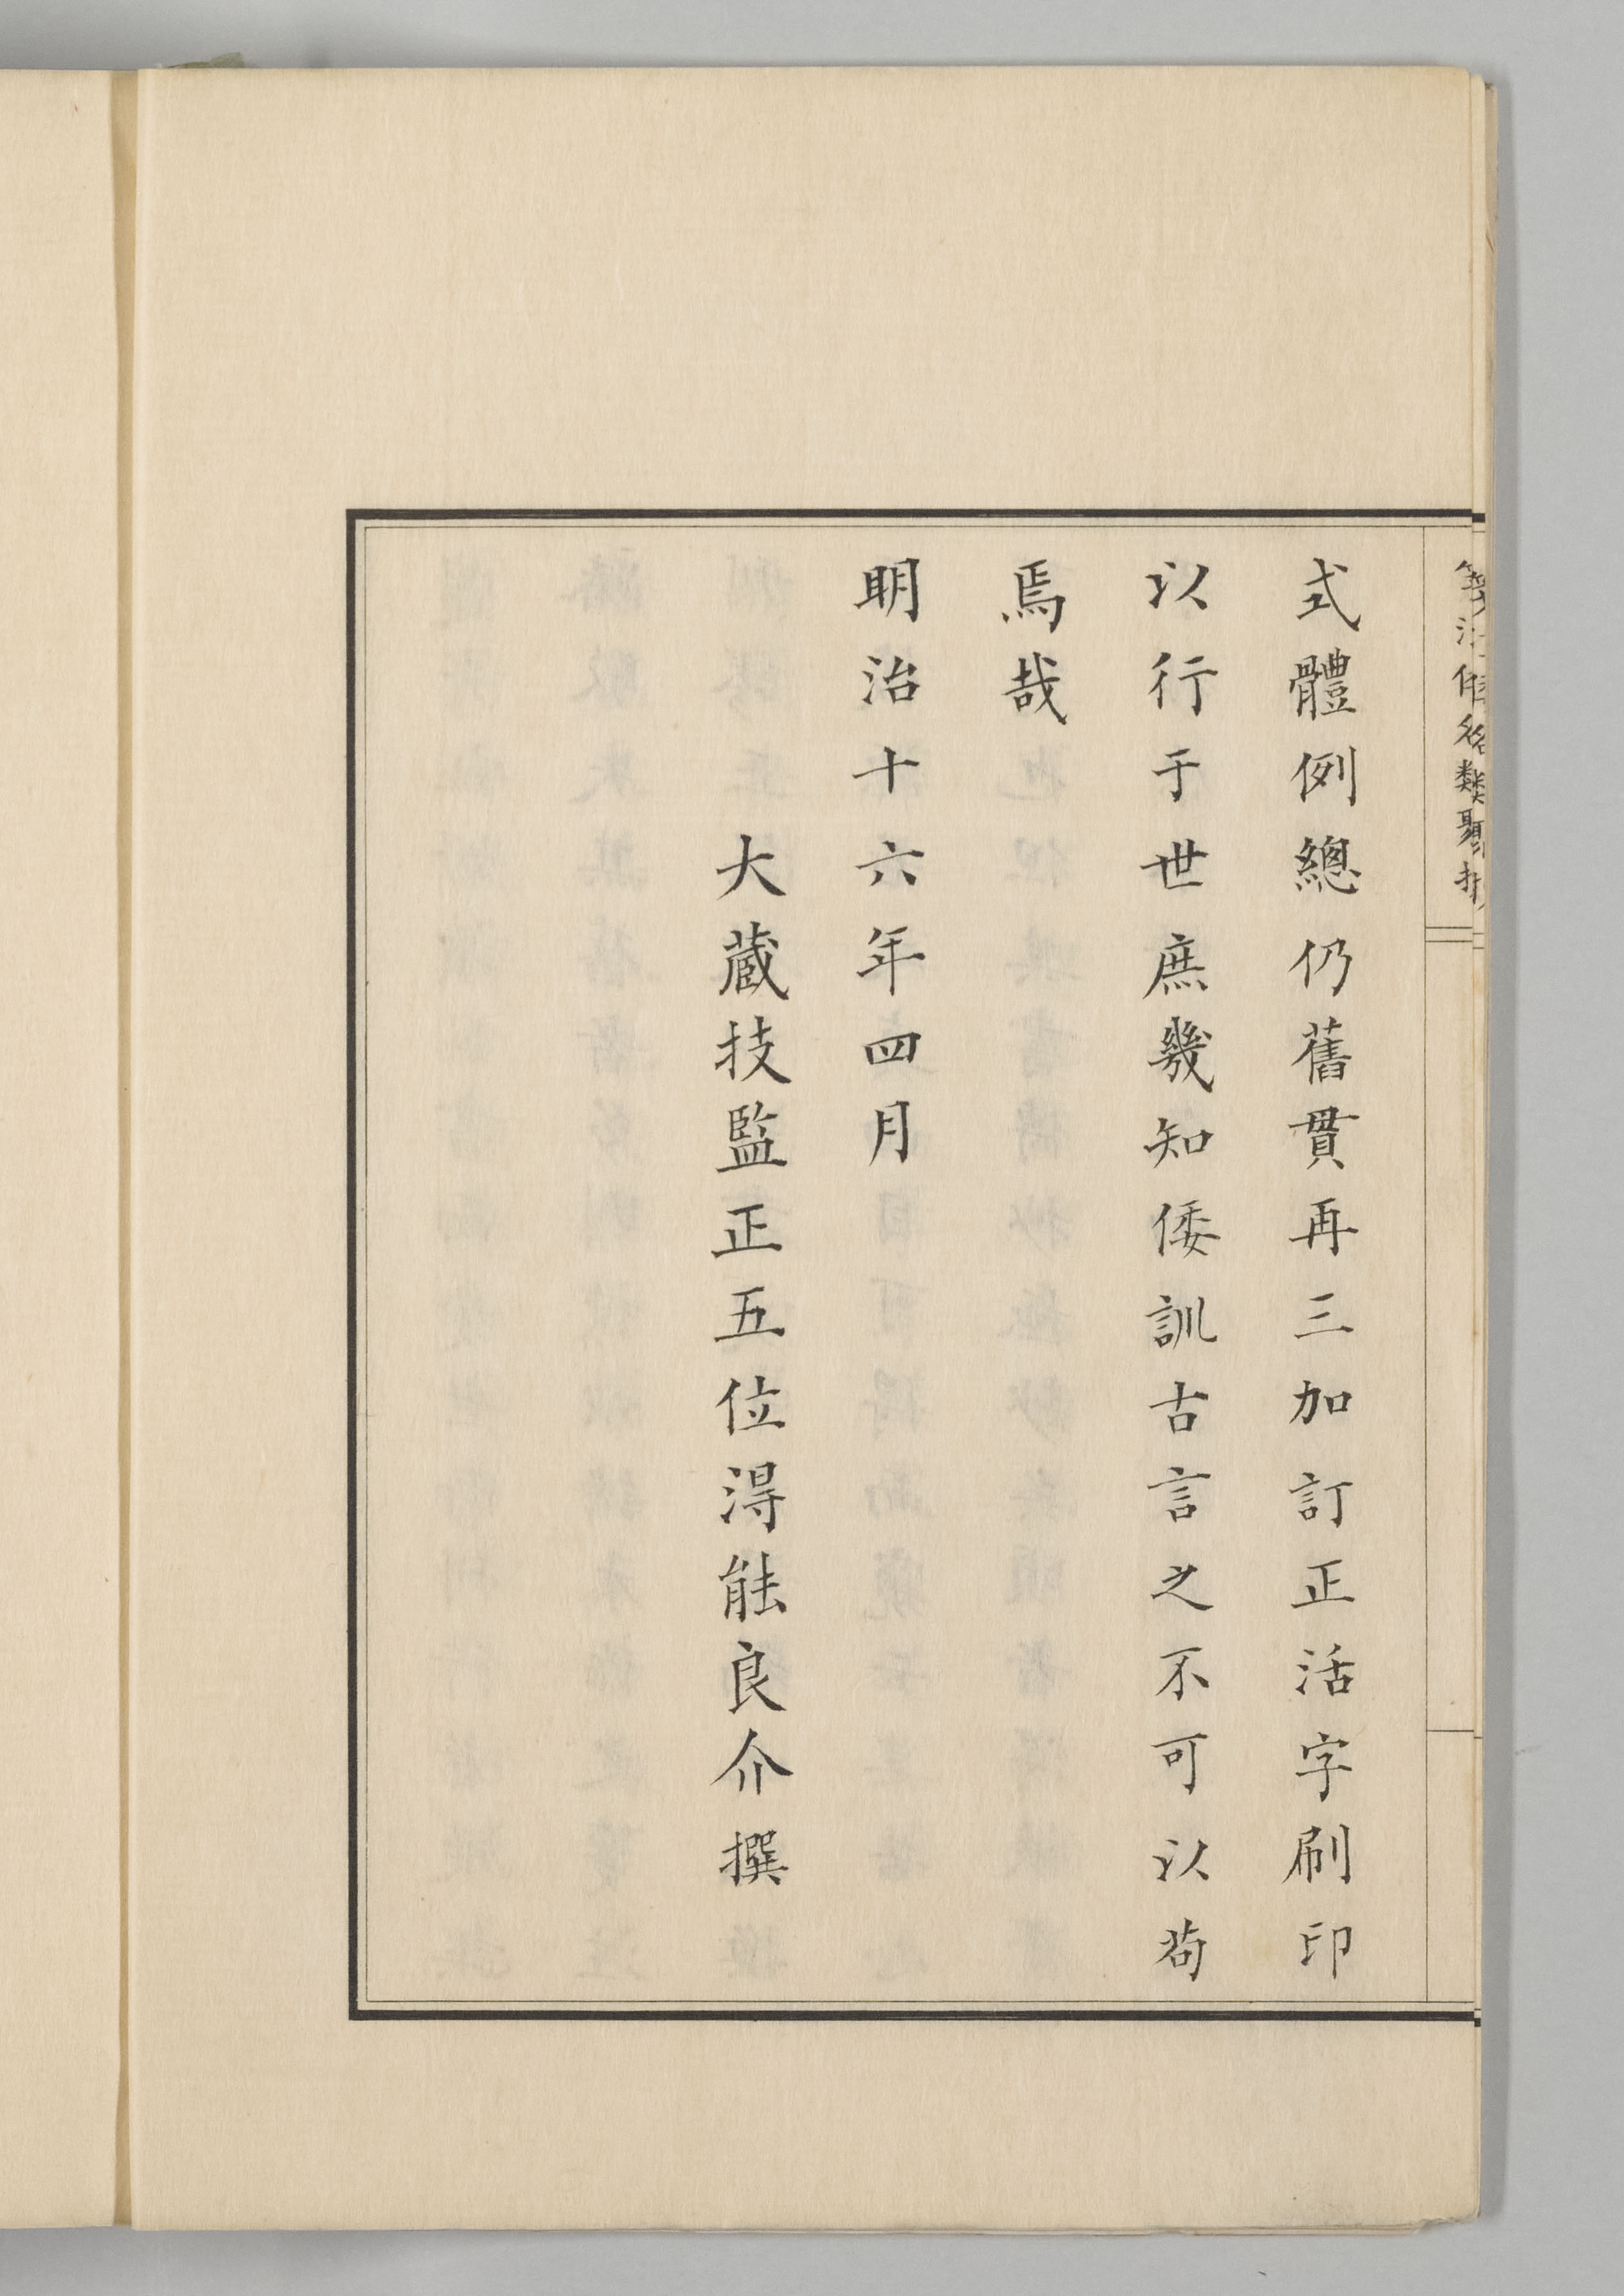 式體例總仍舊貫再三加訂正活字刷印
以行于世庶幾知倭訓古言之不可以苟
焉哉
明治十六年四月
大蔵技監正五位淂能良介撰